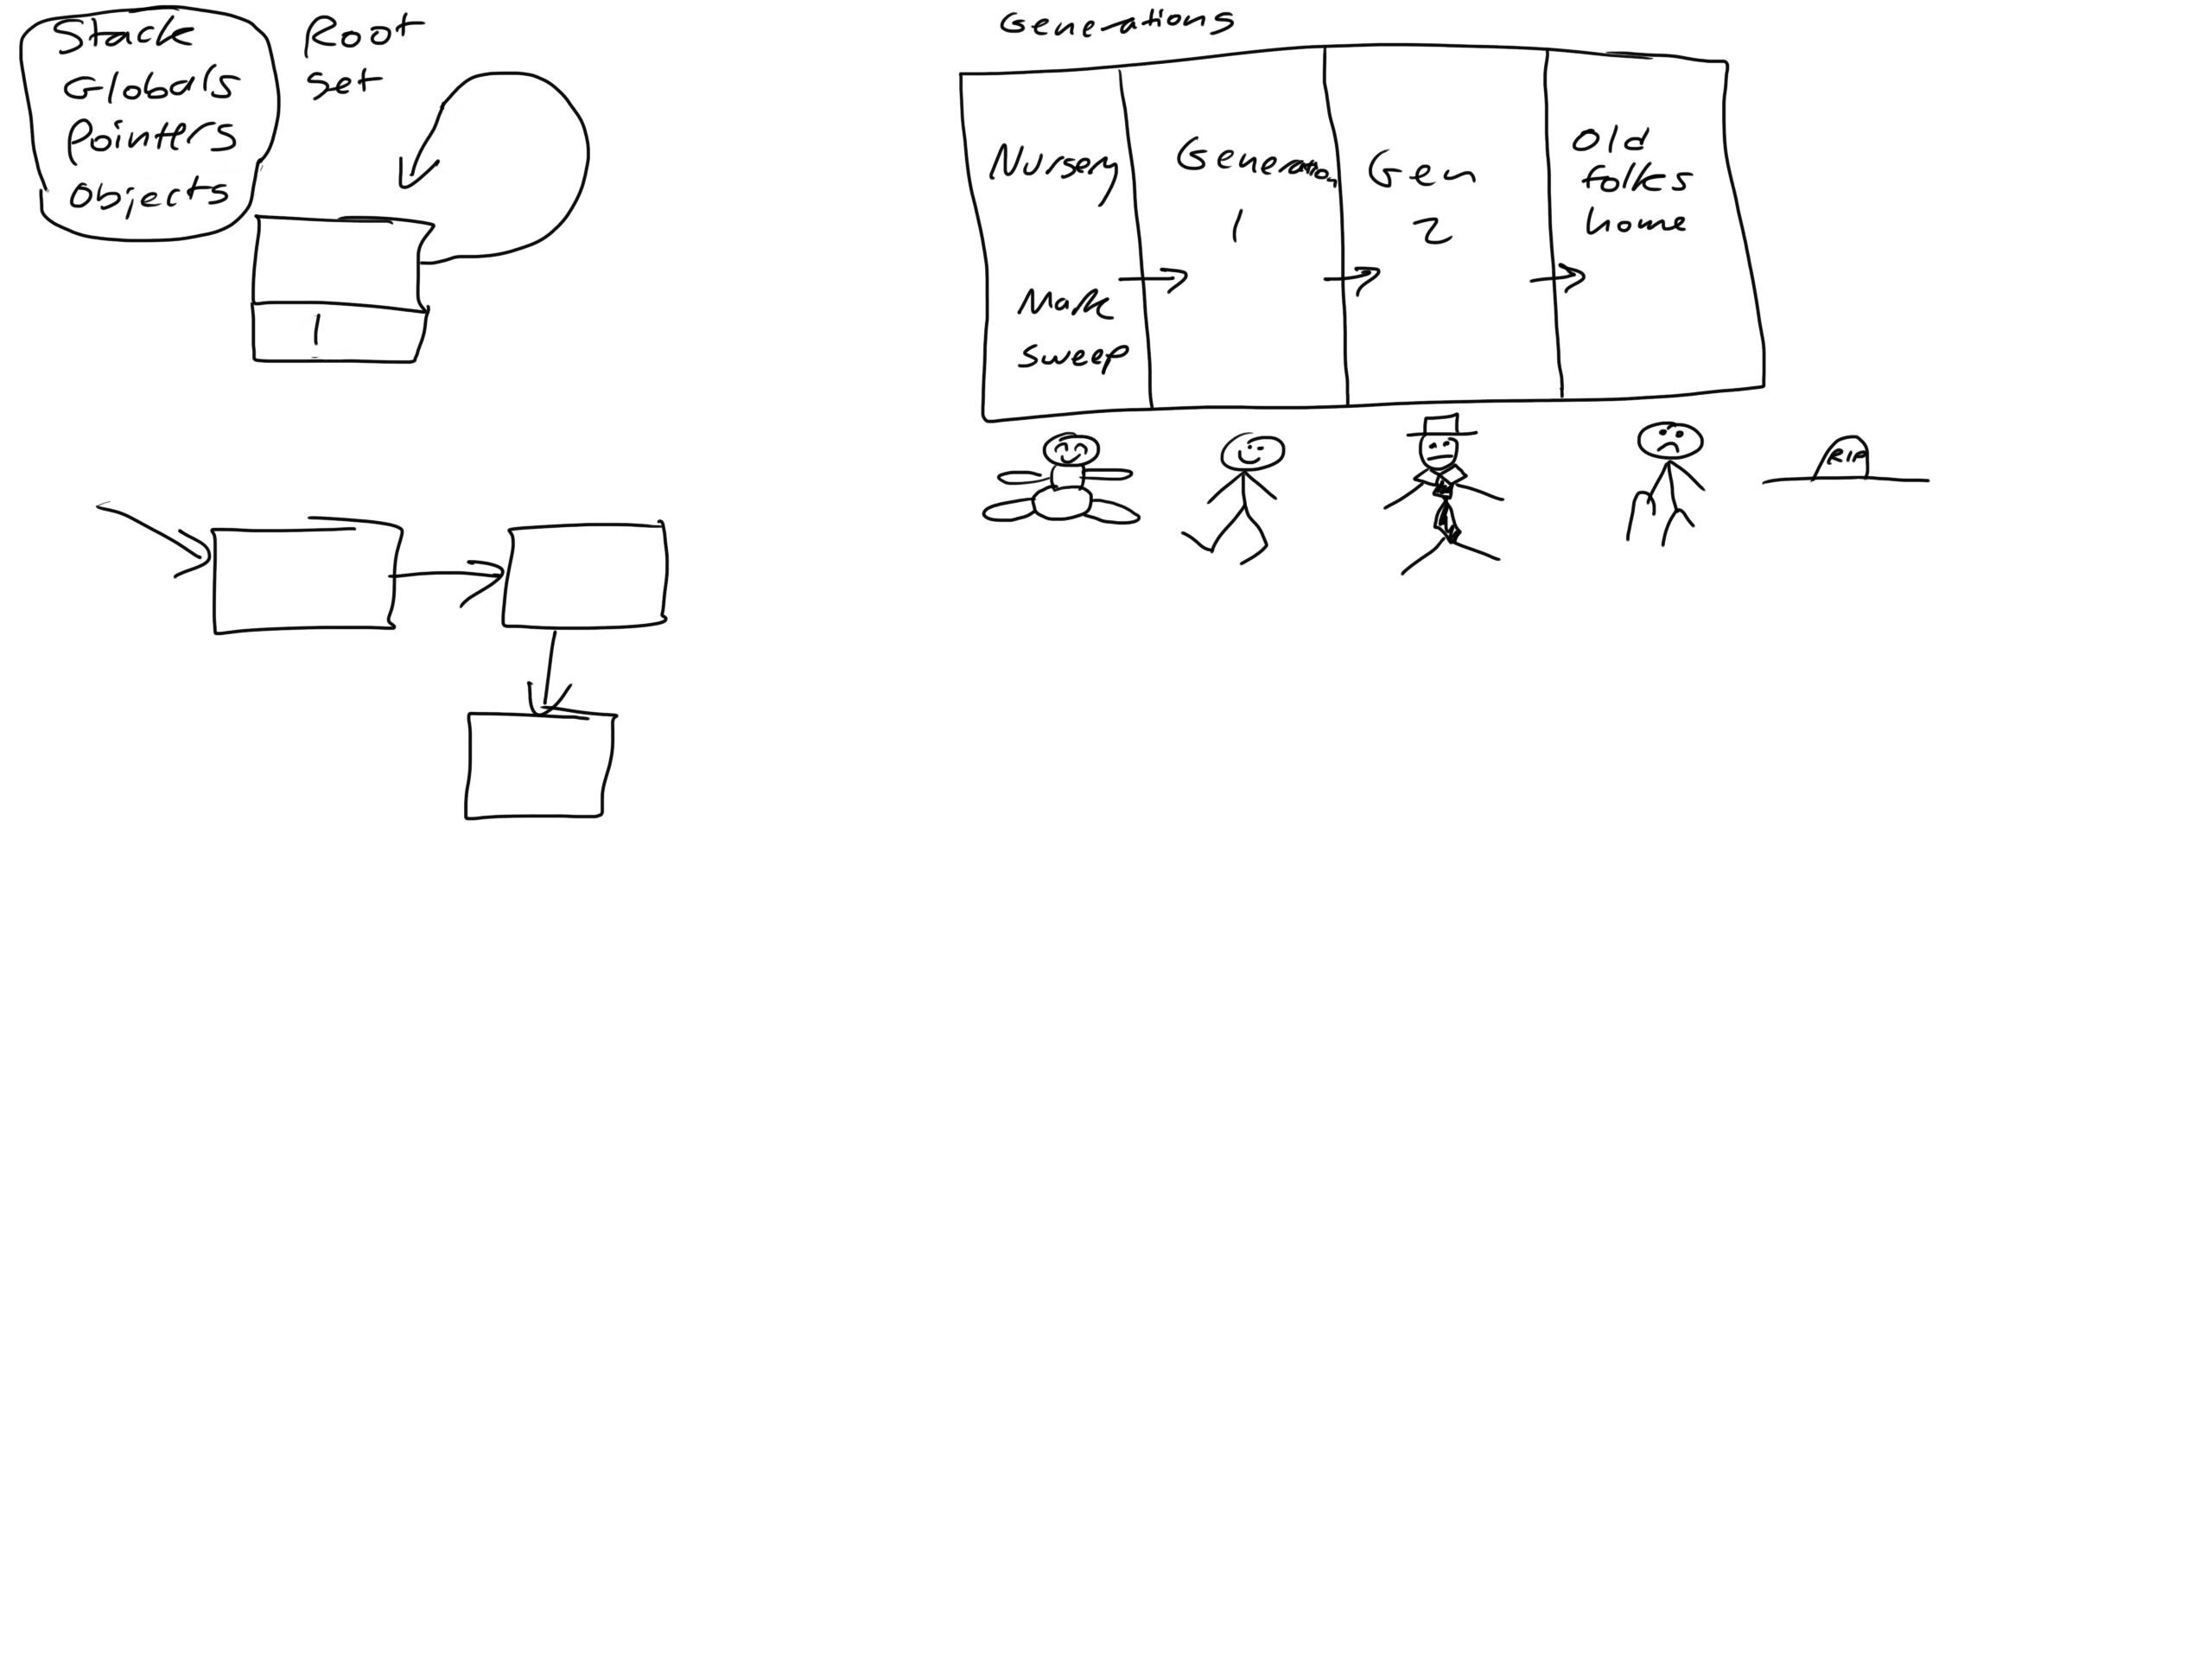 Stack
Globals
Pointers
Objects
Root
set
1
Generations
Nursery
Mark
Sweep
Generation
1
Gen
2
Old
folks
home
RIP